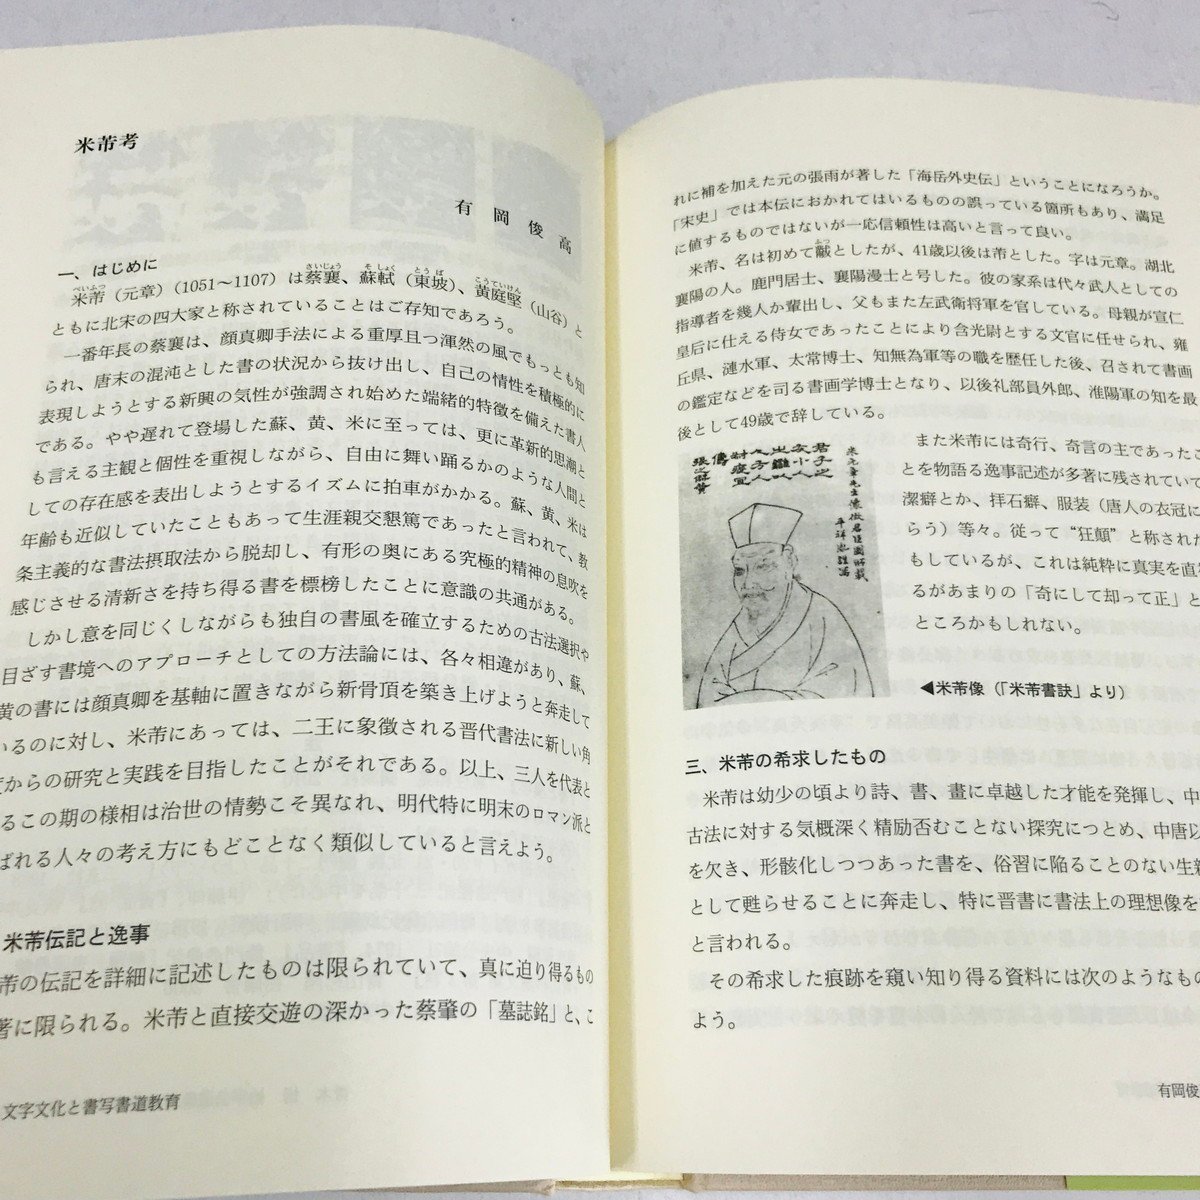 米芾考
有岡俊高
一、はじめに
米芾（元章）（1051〜1107）は蔡襄、蘇軾（東坡）、黄庭堅（山谷）と
ともに北宋の四大家と称されていることはご存知であろう。
一番年長の蔡襄は、顔真卿手法による重厚且つ渾然の風でもっとも知
られ、唐末の混沌とした書の状況から抜け出し、自己の情性を積極的に
表現しようとする新興の気性が強調され始めた端緒的特徴を備えた書人
である。やや遅れて登場した蘇、黄、米に至っては、更に革新的思潮と
も言える主観と個性を重視しながら、自由に舞い踊るかのような人間と
しての存在感を表出しようとするイズムに拍車がかかる。蘇、黄、米は
年齢も近似していたこともあって生涯親交懇篤であったと言われて、教
条主義的な書法摂取法から脱却し、有形の奥にある究極的精神の息吹を
感じさせる清新さを持ち得る書を標榜したことに意識の共通がある。
しかし意を同じくしながらも独自の書風を確立するための古法選択や
目ざす書境へのアプローチとしての方法論には、各々相違があり、蘇、
黄の書には顔真卿を基軸に置きながら新骨頂を築き上げようと奔走して
いるのに対し、米芾にあっては、二王に象徴される晋代書法に新しい角
からの研究と実践を目指したことがそれである。以上、三人を代表と
るこの期の様相は治世の情勢こそ異なれ、明代特に明末のロマン派と
ばれる人々の考え方にもどことなく類似していると言えよう。
米芾伝記と逸事
芾の伝記を詳細に記述したものは限られていて、真に迫り得るもの
著に限られる。米芾と直接交遊の深かった蔡肇の「墓誌銘」と、こ
文字文化と書写書道教育
れに補を加えた元の張雨が著した「海岳外史伝」ということになろうか。
「宋史」では本伝におかれてはいるものの誤っている箇所もあり、満足
に値するものではないが一応信頼性は高いと言って良い。
米芾、名は初めて黻としたが、41歳以後は芾とした。字は元章。湖北
襄陽の人。鹿門居士、襄陽漫士と号した。彼の家系は代々武人としての
指導者を幾人か輩出し、父もまた左武衛将軍を官している。母親が宣仁
皇后に仕える侍女であったことにより含光尉とする文官に任せられ、雍
丘県、漣水軍、太常博士、知無為軍等の職を歴任した後、召されて書画
の鑑定などを司る書画学博士となり、以後礼部員外郎、淮陽軍の知を最
後として49歳で辞している。
また米芾には奇行、奇言の主であったこ
とを物語る逸事記述が多著に残されていて
潔癖とか、拝石癖、服装（唐人の衣冠に
らう）等々。従って“狂顛”と称された
もしているが、これは純粋に真実を直視
るがあまりの「奇にして却って正」と
ところかもしれない。
◀米芾像（「米芾書訣」より）
三、米芾の希求したもの
米芾は幼少の頃より詩、書、畫に卓越した才能を発揮し、中
古法に対する気概深く精励否むことない探究につとめ、中唐以
を欠き、形骸化しつつあった書を、俗習に陥ることのない生新
として甦らせることに奔走し、特に晋書に書法上の理想像を
と言われる。
その希求した痕跡を窺い知り得る資料には次のようなもの
よう。
有岡俊